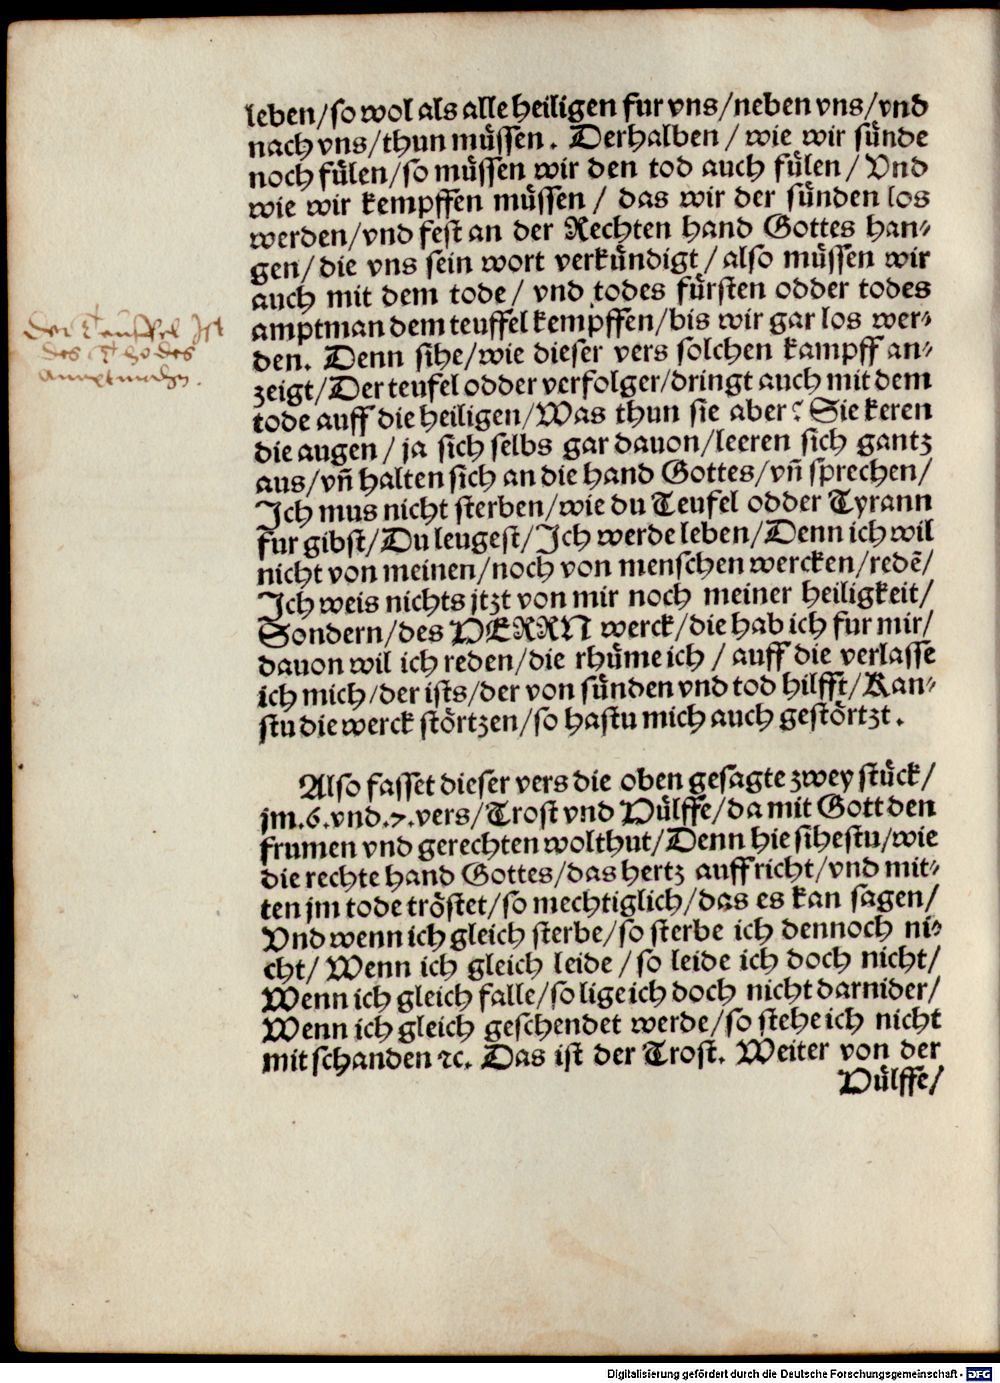 leben/so wol als alle heiligen fur vns/neben vns/vnd
nach vns/thun müssen. Derhalben/ wie wir sünde
noch fülen/so müssen wir den tod auch fülen/ Vnd
wie wir kempffen müssen/ das wir der sünden los
werden/vnd fest an der Rechten hand Gottes han-
gen/ die vns sein wort verkündigt/ also müssen wir
auch mit dem tode/ vnd todes fürsten odder todes
amptman dem teuffel kempffen/bis wir gar los wer-
den. Denn sihe/wie dieser vers solchen kampff an-
zeigt/Der teufel odder verfolger/dringt auch mit dem
tode auff die heiligen/Was thun sie aber? Sie keren
die augen/ ja sich selbs gar dauon/leeren sich gantz
aus/vñ halten sich an die hand Gottes/vñ sprechen/
Ich mus nicht sterben/wie du Teufel odder Tyrann
fur gibst/Du leugest/Ich werde leben/Denn ich wil
nicht von meinen/noch von menschen wercken/redẽ/
Ich weis nichts jtzt von mir noch meiner heiligkeit/
Sondern/des HERRN werck/die hab ich fur mir/
dauon wil ich reden/die rhüme ich/ auff die verlasse
ich mich/der ists/der von sünden vnd tod hilfft/Kan-
stu die werck störtzen/so hastu mich auch gestörtzt.
Der Teuffel Ist
des Thodes
amptmahn.
Also fasset dieser vers die oben gesagte zwey stück/
jm.6.vnd.7.vers/Trost vnd Hülffe/da mit Gott den
frumen vnd gerechten wolthut/Denn hie sihestu/wie
die rechte hand Gottes/das hertz auffricht/vnd mit-
ten jm tode tröstet/so mechtiglich/das es kan sagen/
Vnd wenn ich gleich sterbe/so sterbe ich dennoch ni-
cht/ Wenn ich gleich leide/so leide ich doch nicht/
Wenn ich gleich falle/so lige ich doch nicht darnider/
Wenn ich gleich geschendet werde/so stehe ich nicht
mit schanden ꝛc. Das ist der Trost. Weiter von der
Hülffe/
Digitalisierung gefördert durch die Deutsche Forschungsgemeinschaft - DFG